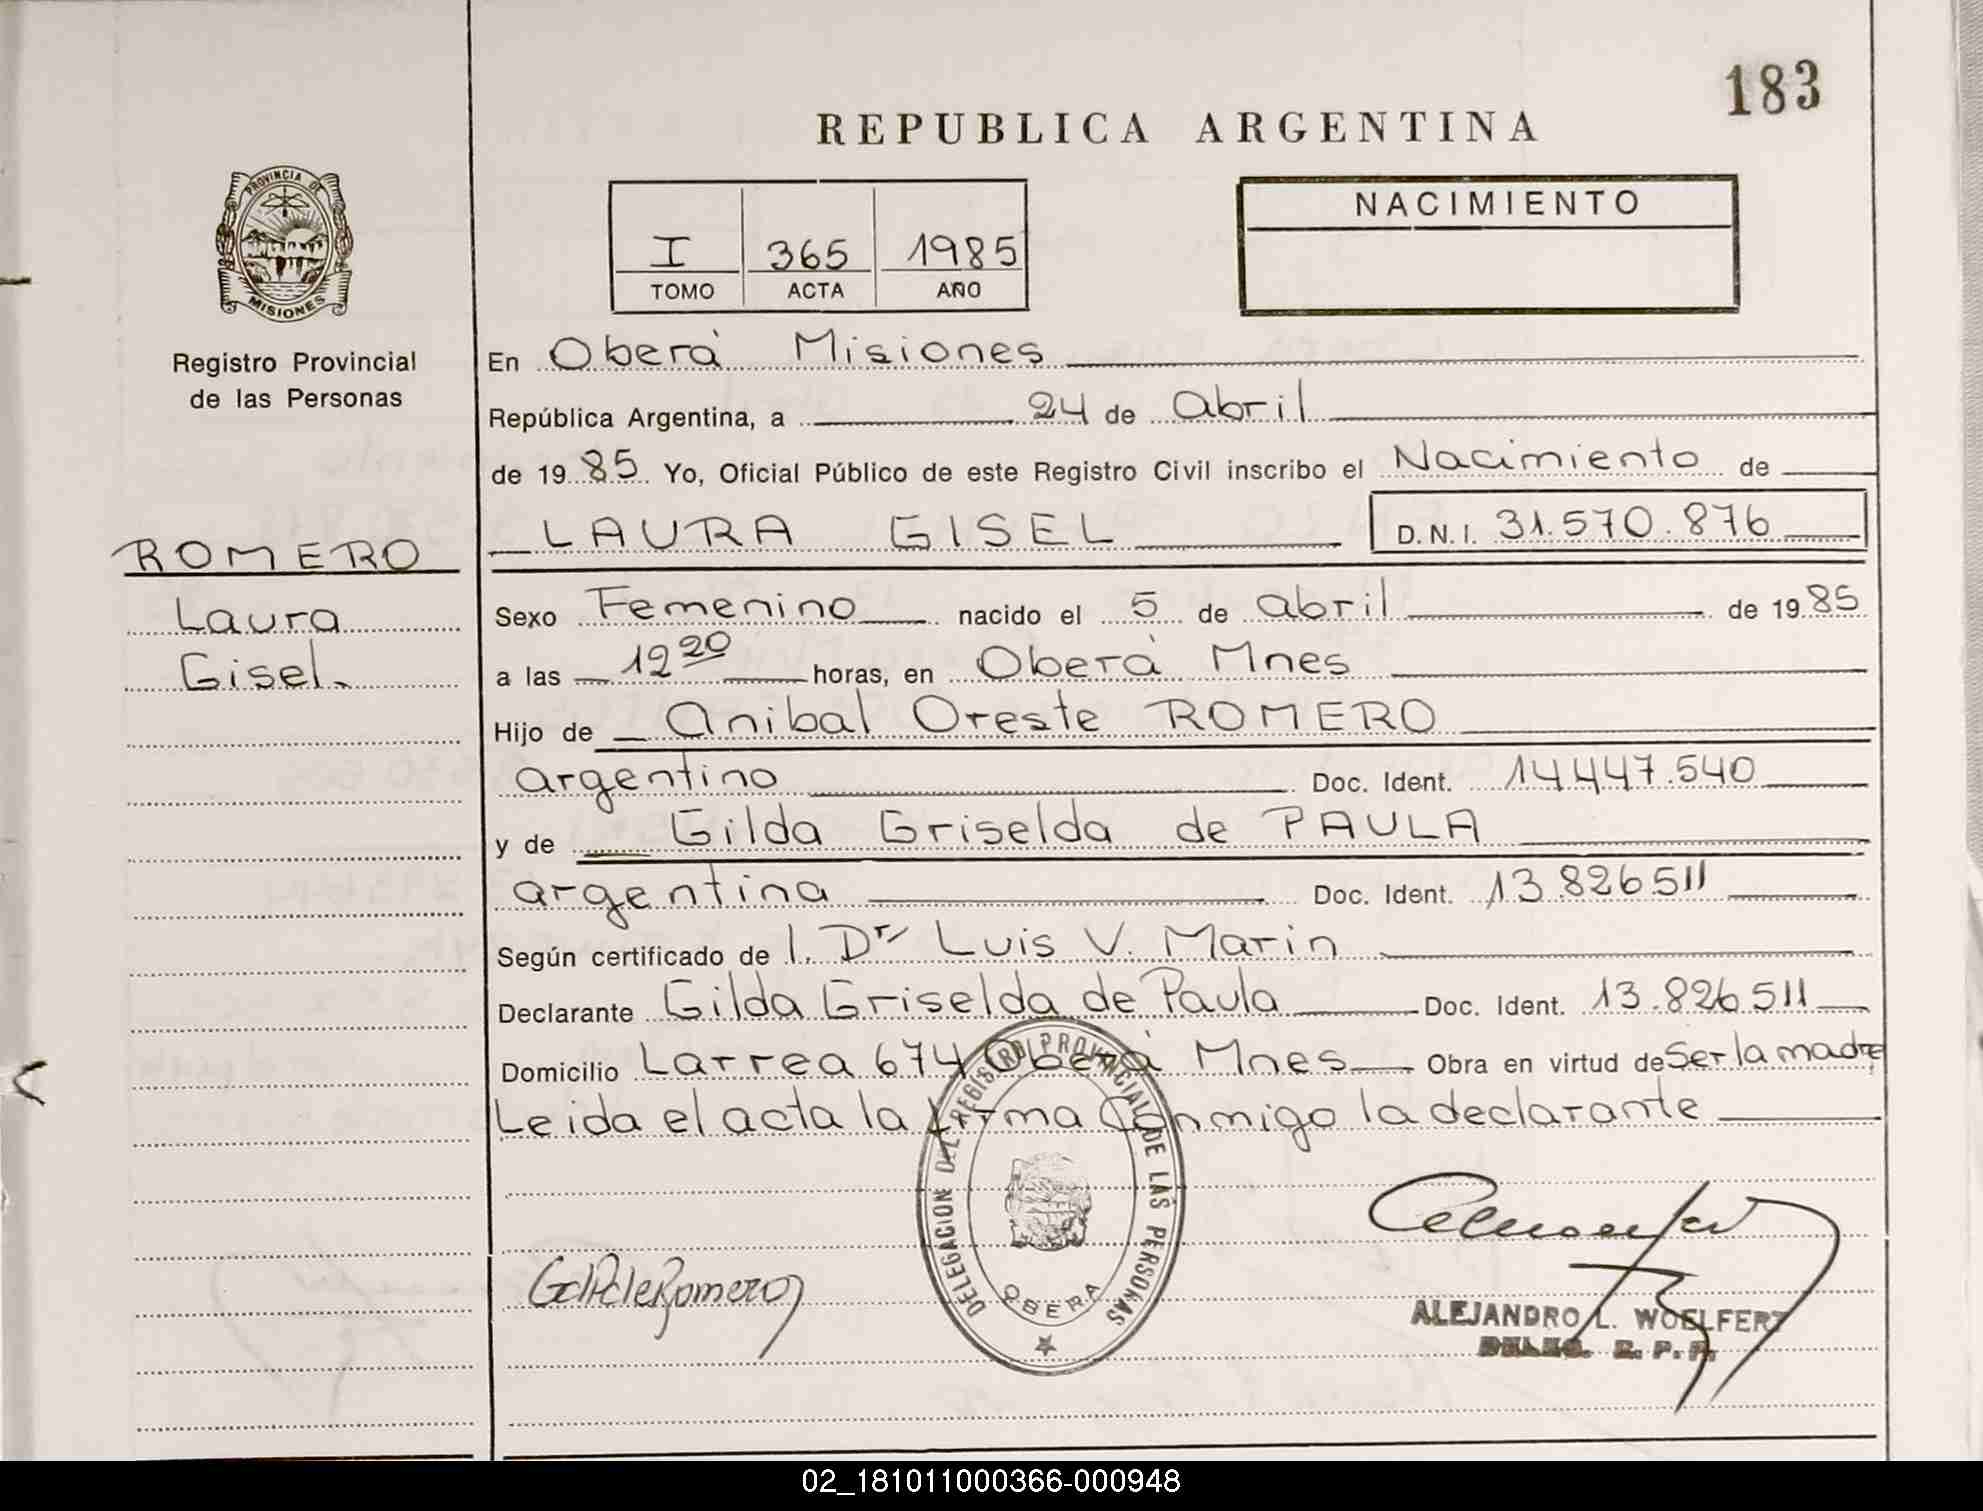 183
REPUBLICA ARGENTINA
PROVINCIA DE
MISIONES
Registro Provincial
de las Personas
I 365 1985
TOMO ACTA AÑO
NACIMIENTO
En Oberá Misiones
República Argentina, a 24 de abril
de 1985 Yo, Oficial Público de este Registro Civil inscribo el Nacimiento de
LAURA GISEL D.N.I. 31.570.876
ROMERO
Laura
Gisel.
Sexo Femenino nacido el 5 de abril de 1985
a las 12 20 horas, en Oberá Mnes
Hijo de Anibal Oreste ROMERO
argentino Doc. Ident. 14.447.540
y de Gilda Griselda de PAULA
argentina Doc. Ident. 13.826.511
Según certificado de l. Dr Luis V. Marin
Declarante Gilda Griselda de Paula Doc. Ident. 13.826.511
Domicilio Larrea 674 Oberá Mnes Obra en virtud de Ser la madre
Leida el acta la firma Conmigo la declarante
DELEGACION DEL REGISTRO PROVINCIAL DE LAS PERSONAS
OBERA
GdPdeRomero
ALEJANDRO L. WOELFERT
DELEG. R. P. P.
02_181011000366-000948